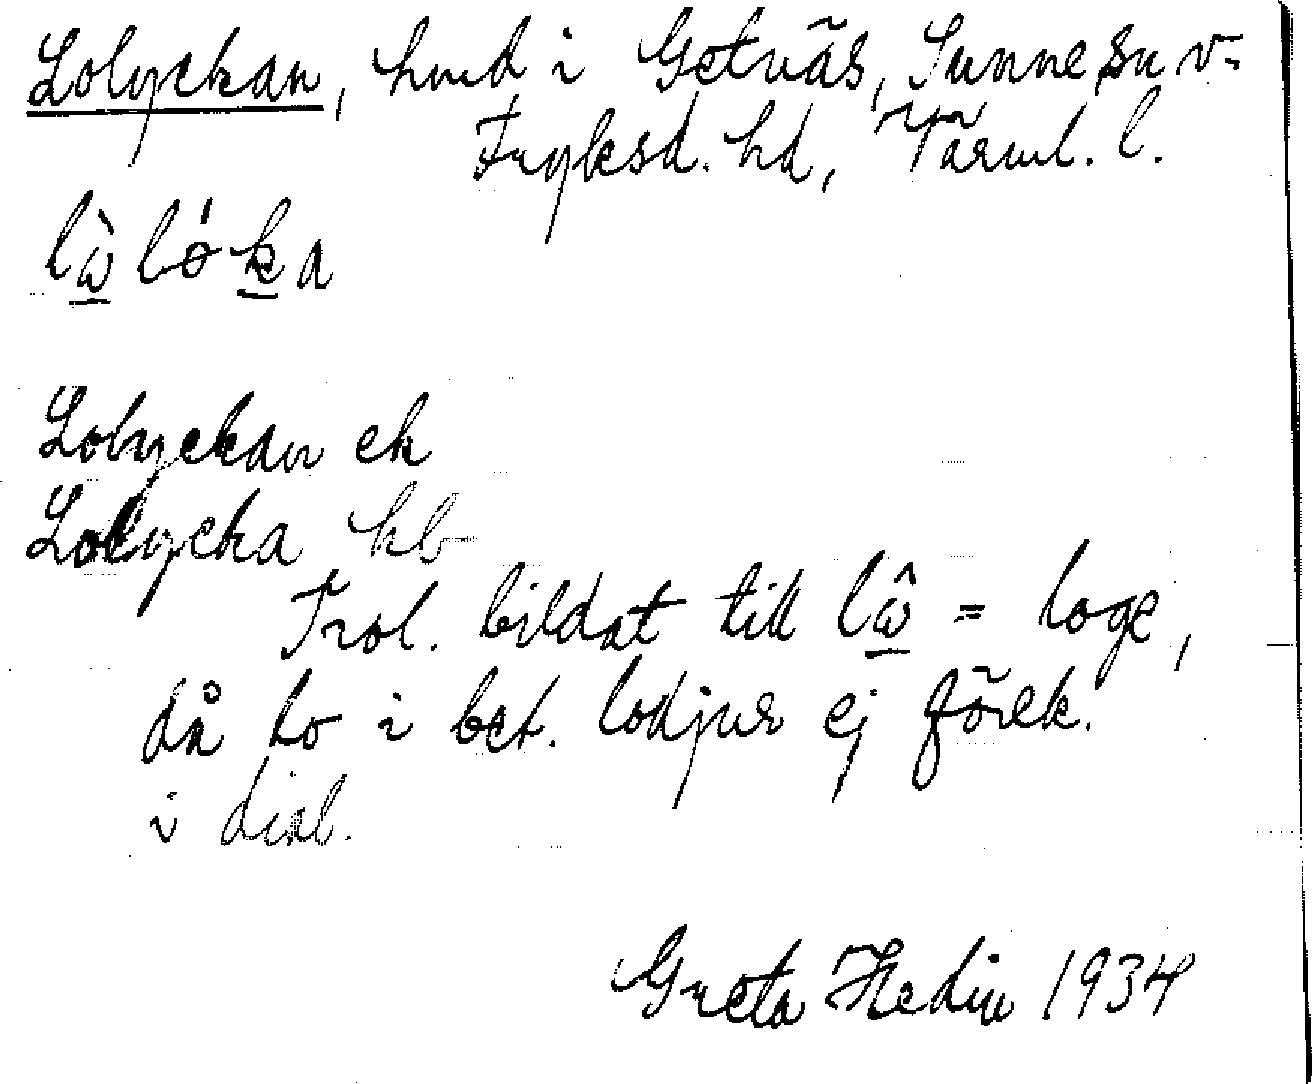 Lolyckan, hmd i Getnäs, Sunne sn v-
Fryksd. hd, Värml. l.
lὼ lǿka
Lolyckan ek
Lolycka hb
Trol. bildat till lω̂ = loge,
då lo i bet. lodjur ej förek.
i dial.
Greta Hedin 1934